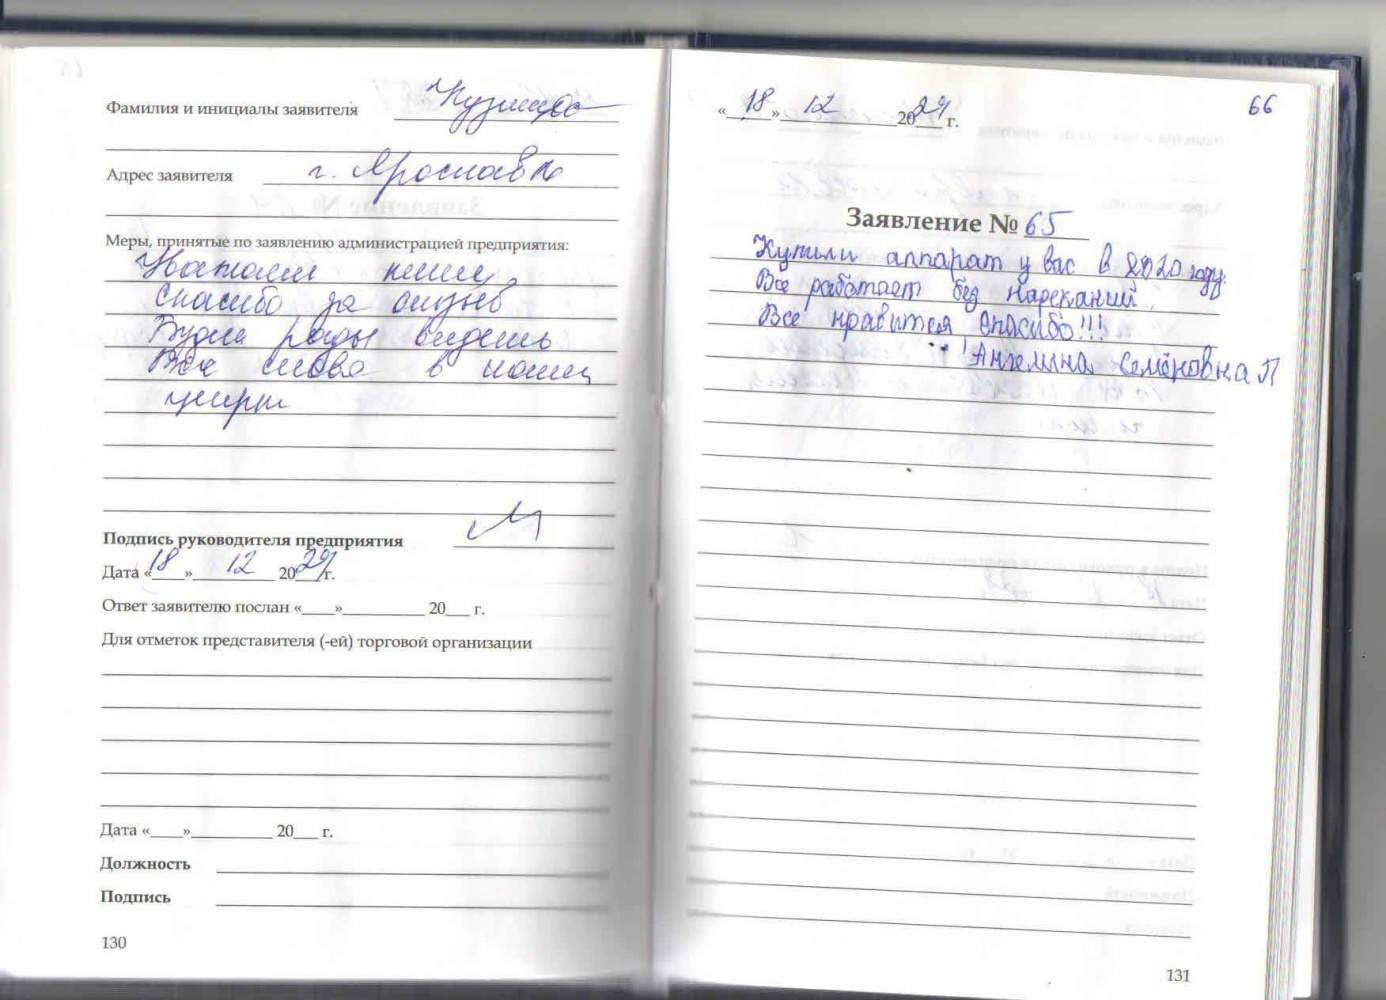 Фамилия и инициалы заявителя Кузнецова
Адрес заявителя г. Ярославль
Меры, принятые по заявлению администрацией предприятия:
спасибо за отзыв
Будем рады видеть
Вас снова в нашем
центре
Подпись руководителя предприятия
Дата «18» 12 2024 г.
Ответ заявителю послан «____»__________ 20___ г.
Для отметок представителя (-ей) торговой организации
Дата «____»__________ 20___ г.
Должность
Подпись
130
«18» 12 2024 г.
66
Заявление № 65
Купили аппарат у вас в 2020 году.
Все работает без нареканий.
Все нравится спасибо!!!
Ангелина Семёновна П
131